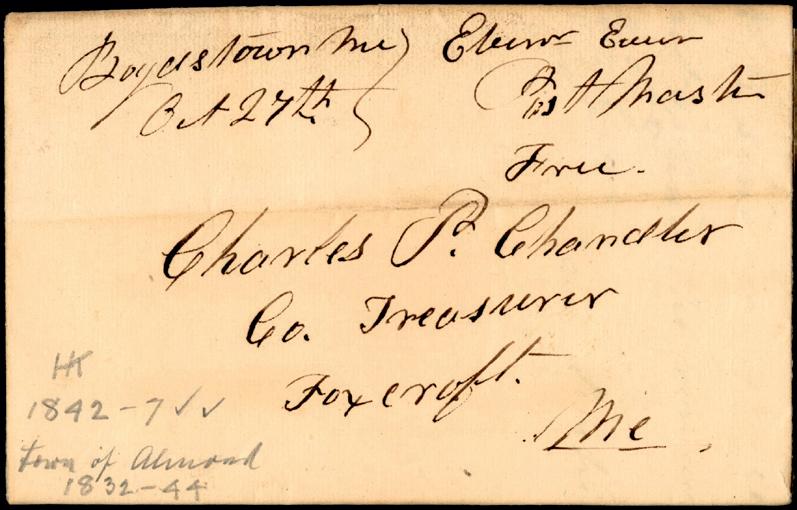 Boydstown Me
Oct 27th.
Post Master
Free.
Charles P. Chandler
Co. Treasurer
Foxcroft.
Me
1842-7 ✓✓
Town of Almond
1832-44